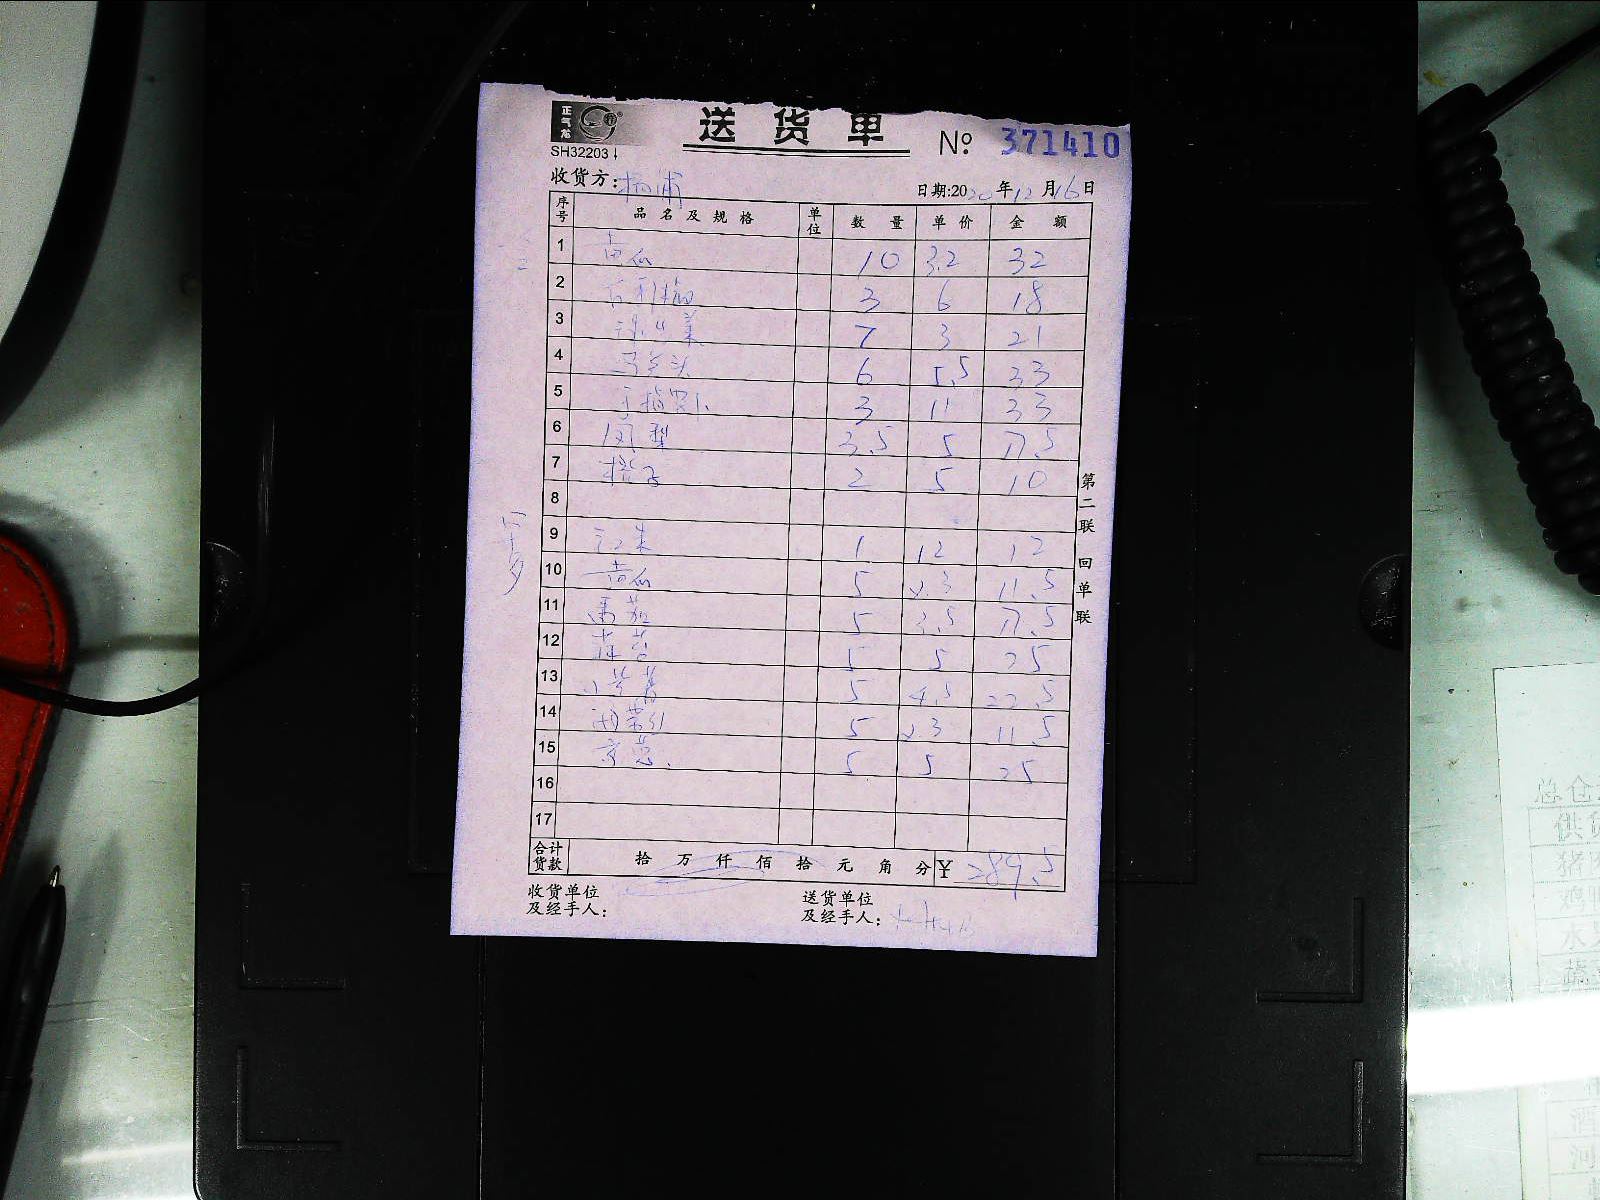 正气龙
送货单 № 371410
SH32203
收货方: 杨浦 日期:2020年12月16日
序号 品名及规格 单位 数量 单价 金额
1 黄瓜 10 3.2 32
2 3 6 18
3 7 3 21
4 马兰头 6 5.5 33
5 手指萝卜 3 11 33
6 凤梨 3.5 5 17.5
7 橙子 2 5 10
8
9 1 12 12
10 黄瓜 5 2.3 11.5
11 番茄 5 3.5 17.5
12 蒜苔 5 5 25
13 5 4.5 22.5
14 5 2.3 11.5
15 京葱 5 5 25
16
17
合计货款 拾 万 仟 佰 拾 元 角 分 ¥ 289.5
收货单位及经手人:
送货单位及经手人:
第二联 回单联
总仓
供货
猪肉
鸡鸭
水果
蔬
酒
河